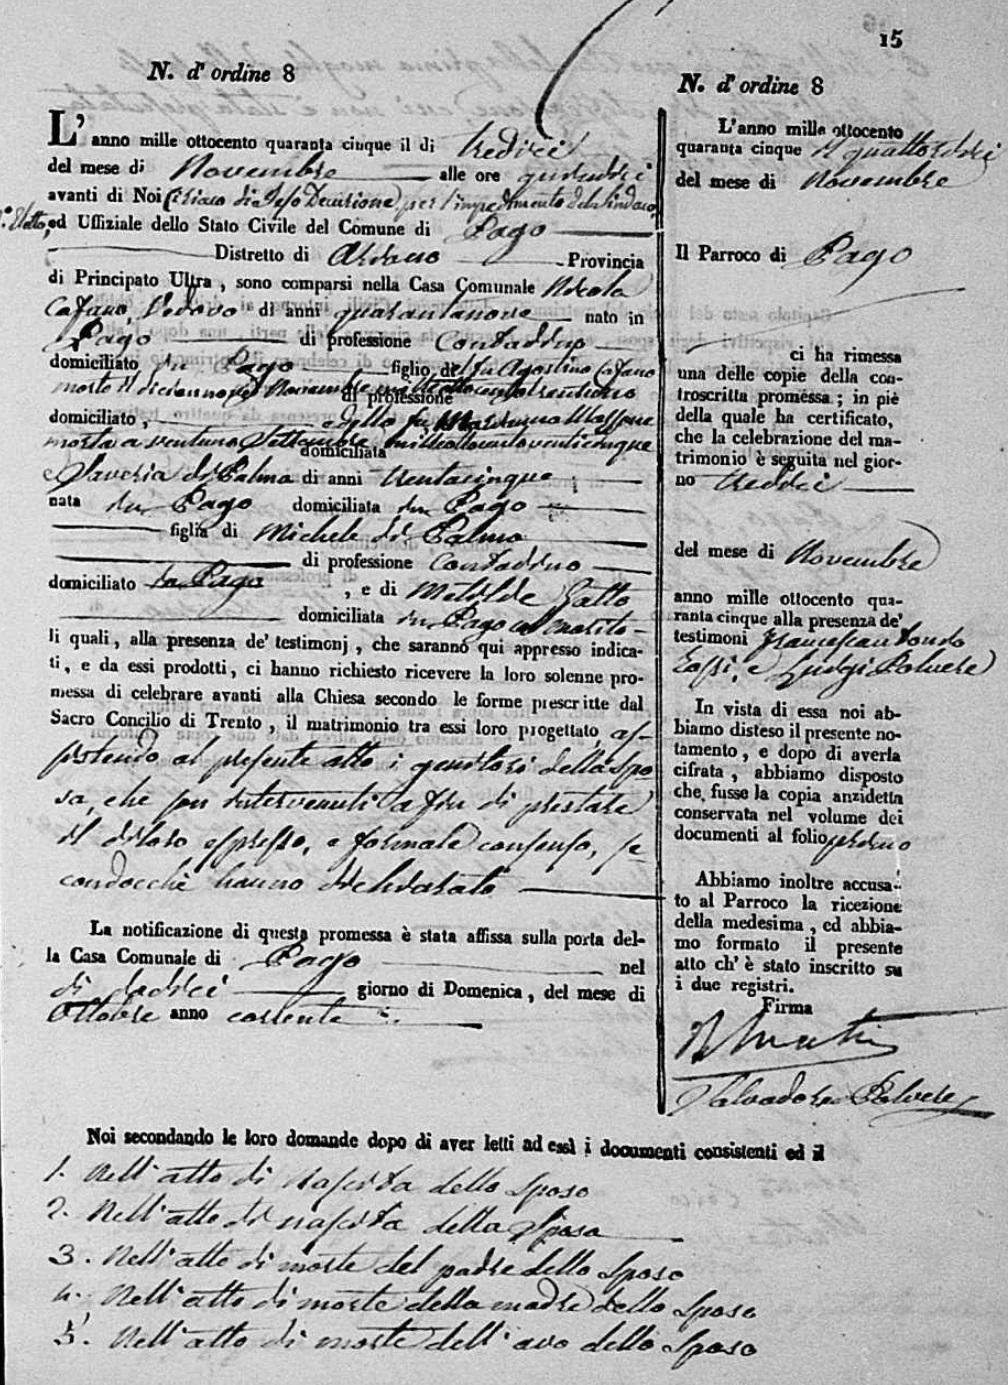 15
N. d' ordine 8
L' anno mille ottocento quaranta cinque il di tredici
del mese di Novembre alle ore quindici
avanti di Noi Ciriaco di Jeso Decurione, per l'impedimento del Sindaco,
ed Uffiziale dello Stato Civile del Comune di Pago
Distretto di Ariano Provincia
di Principato Ultra, sono comparsi nella Casa Comunale Nicola
Cafano, Vedovo di anni quarantanove nato in
Pago di professione Contadino
domiciliato in Pago figlio del fu Agostino Cafano
morto il diciannove Novembre mille ottocento trentuno
di professione
domiciliato, e della fu
morta a ventuno Settembre mille ottocento venticinque
domiciliata
e Saveria di Palma di anni trentacinque
nata in Pago domiciliata in Pago
figlia di Michele di Palma
di professione Contadino
domiciliato in Pago, e di Matilde Gallo
domiciliata in Pago col marito
li quali, alla presenza de' testimonj, che saranno qui appresso indica-
ti, e da essi prodotti, ci hanno richiesto ricevere la loro solenne pro-
messa di celebrare avanti alla Chiesa secondo le forme prescritte dal
Sacro Concilio di Trento, il matrimonio tra essi loro progettato, as-
sistendo al presente atto i genitori della Spo
sa, che son intervenuti a fin di prestare
il di loro espresso, e formale consenso, se-
condocchè hanno dichiarato
La notificazione di questa promessa è stata affissa sulla porta del-
la Casa Comunale di Pago nel
di dodici giorno di Domenica, del mese di
Ottobre anno corrente
N. d' ordine 8
L'anno mille ottocento
quaranta cinque il quattordici
del mese di Novembre
Il Parroco di Pago
ci ha rimessa
una delle copie della con-
troscritta promessa; in piè
della quale ha certificato,
che la celebrazione del ma-
trimonio è seguita nel gior-
no tredici
del mese di Novembre
anno mille ottocento qua-
ranta cinque alla presenza de'
testimoni Francescantonio
e Luigi Polvere
In vista di essa noi ab-
biamo disteso il presente no-
tamento, e dopo di averla
cifrata, abbiamo disposto
che fusse la copia anzidetta
conservata nel volume dei
documenti al folio primo
Abbiamo inoltre accusa-
to al Parroco la ricezione
della medesima, ed abbia-
mo formato il presente
atto ch' è stato inscritto su
i due registri.
Firma
Salvadore Polvere
Noi secondando le loro domande dopo di aver letti ad essi i documenti consistenti ed il
1. Nell' atto di nascita dello Sposo
2. Nell' atto di nascita della Sposa
3. Nell' atto di morte del padre dello Sposo
4. Nell' atto di morte della madre dello Sposo
5. Nell' atto di morte dell' avo dello Sposo